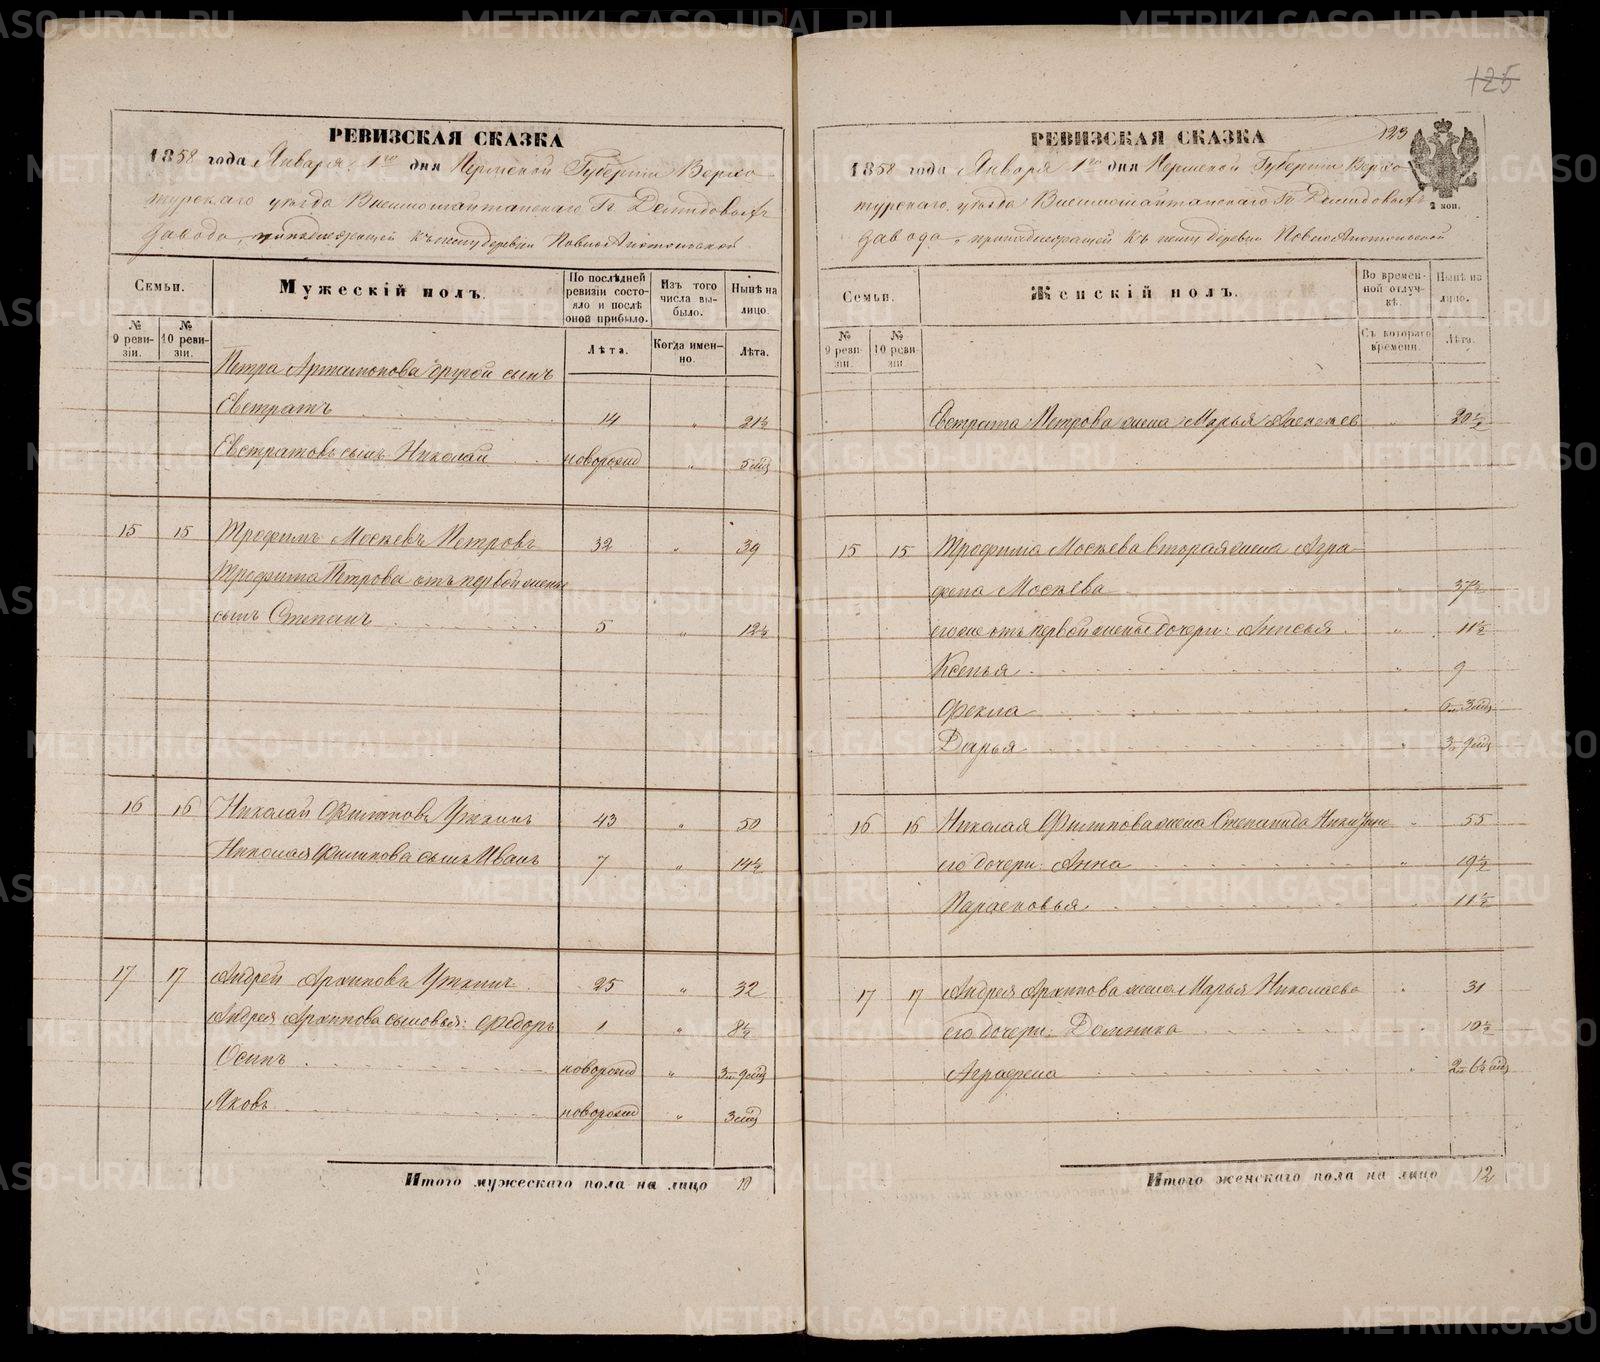 125
РЕВИЗСКАЯ СКАЗКА
1858 года Января 1го дня Пермской Губерніи Верхо-
турскаго уѣзда Висимошайтанскаго Гг. Демидовыхъ
завода, принадлежащей къ нему деревни
Семьи.
№ 9 ревизіи.
№ 10 ревизіи.
Мужескій полъ.
По послѣдней ревизіи состояло и послѣ оной прибыло.
Лѣта.
Изъ того числа выбыло.
Когда именно.
Нынѣ на лицо.
Лѣта.
Петра Артамонова другой сынъ
Евстратъ 14 „ 21½
Евстратовъ сынъ Николай новорожд „ 5 мѣц
15 15 Трофимъ Москевъ Петровъ 32 „ 39
Трофима Петрова отъ первой жены
сынъ Степанъ 5 „ 12½
16 16 Николай Филиповъ Уткинъ 43 „ 50
Николая Филипова сынъ Иванъ 7 „ 14½
17 17 Андрей Архиповъ Уткинъ 25 „ 32
Андрея Архипова сыновья: Федоръ 1 „ 8½
Осипъ новорожд „ 3 л 9 мѣц
Яковъ новорожд „ 3 мѣц
Итого мужескаго пола на лицо 10
РЕВИЗСКАЯ СКАЗКА 123
1858 года Января 1го дня Пермской Губерніи Верхо-
турскаго уѣзда Висимошайтанскаго Гг. Демидовыхъ
завода, принадлежащей къ нему деревни
2 коп.
Семьи.
№ 9 ревизіи.
№ 10 ревизіи.
Женскій полъ.
Во временной отлучкѣ.
Съ котораго времени.
Нынѣ на лицо.
Лѣта.
Евстрата Петрова жена Марья „ 20½
15 15 Трофима Москева вторая жена Агра-
фена Москева „ 37½
его же отъ первой жены дочери: Анисья „ 11½
Ксенья „ 9
Фекла „ 6 л 3 мѣц
Дарья „ 3 л 9 мѣц
16 16 Николая Филипова жена Степанида „ 55
его дочери: Анна „ 19½
Парасковья „ 11½
17 17 Андрея Архипова жена Марья Николаева „ 31
его дочери: Домника „ 10½
Аграфена „ 2 л 6½ мѣц
Итого женскаго пола на лицо 12
METRIKI.GASO-URAL.RU